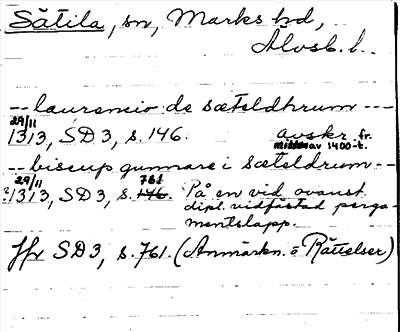 Sätila, sn, Marks hd,
Älvsb. l.
-- laurencio de sæteldhrum ---
29/11
1313, SD 3, s. 146. avskr. fr.
mitten av 1400-t.
-- biscup gunnare i sæteldrum --
29/11 761
?1313, SD 3, s. 146. På en vid ovanst.
dipl. vidfästad perga-
mentslapp.
Jfr SD 3, s. 761. (Anmärkn. o Rättelser)